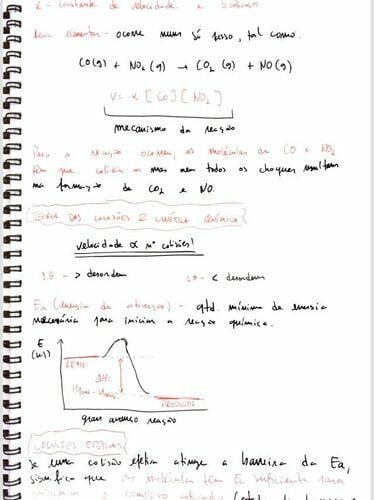 K - constante de velocidade e
Reac. elementar - ocorre num só passo, tal como:
CO(g) + NO₂(g) → CO₂(g) + NO(g)
V = K [CO][NO₂]
mecanismo da reação
Para a reação ocorrer, as moléculas de CO e NO₂
têm que colidir mas nem todos os choques resultam
na formação de CO₂ e NO.
TEORIA DAS COLISÕES E CINÉTICA QUÍMICA
velocidade α nº colisões!
> desordem < desordem
Ea (energia de ativação) - qtd. mínima de energia
necessária para iniciar a reação química.
E
REAG.
ΔH:
PRODUTOS
grau avanço reação
COLISÕES EFETIVAS
Se uma colisão efetiva atinge a barreira da Ea,
significa que as moléculas têm Ea suficiente para
o complexo ativado